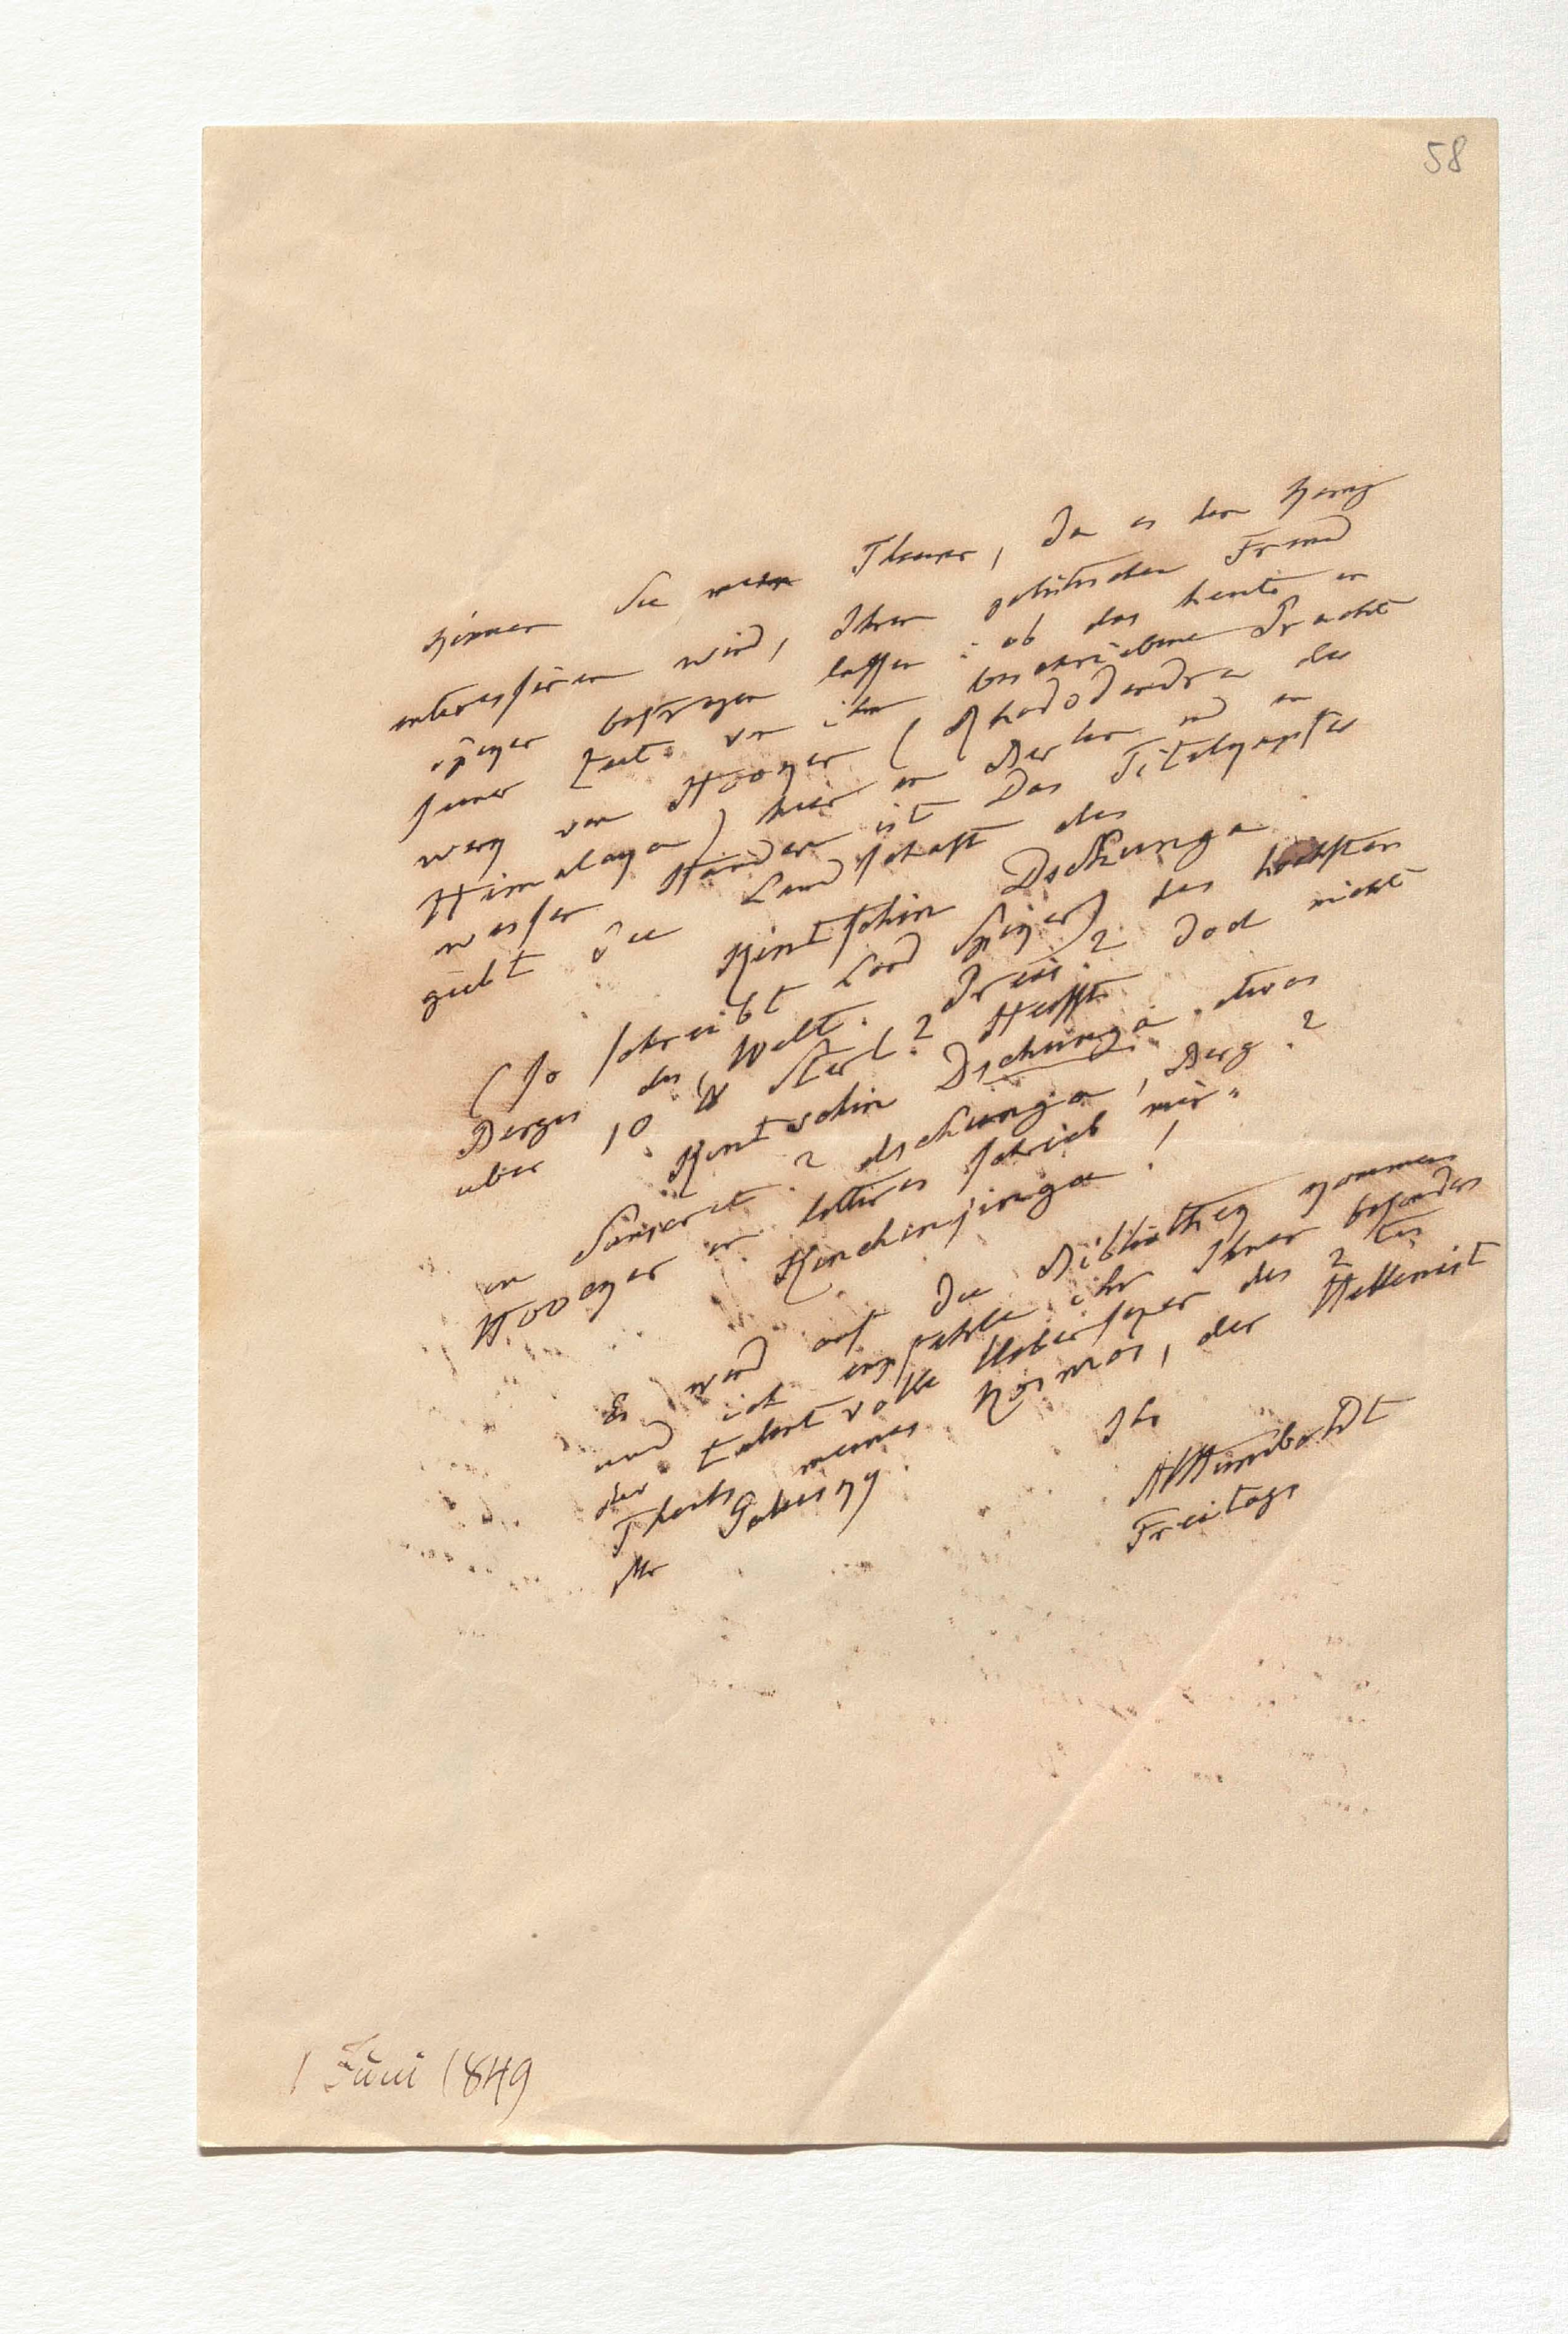 58
Können Sie mein Theurer, da es den König
interessiren wird, Ihren politischen Freund
Spiker befragen lassen: ob das heute in
seiner Zeit. von ihm beschriebene Pracht
werk von Hooker (Rhododendra des
Himalaya) hier in Berlin und in
wessen Händen ist. Das Titelkupfer
giebt die Landschaft des
Kintschin Dschunga
(so schreibt Lord Spiker) des höchsten
Berges der Welt. Preis? doch nicht
über 10 Sterl? Heisst
Kintschin Dschunga etwas
im Sanscrit? dschunga, Berg?
Hooker in lettres schrieb mir
Kinchinjinga!
Es wird auf die Bibliothek kommen
und ich empfehle ihr Ihnen besonders
der talentvolle Uebersezer des 2 ten
Theils meines Kosmos, der Hellenist
Mr Galusky
Ihr
AlHumboldt
Freitags
1 Juni 1849